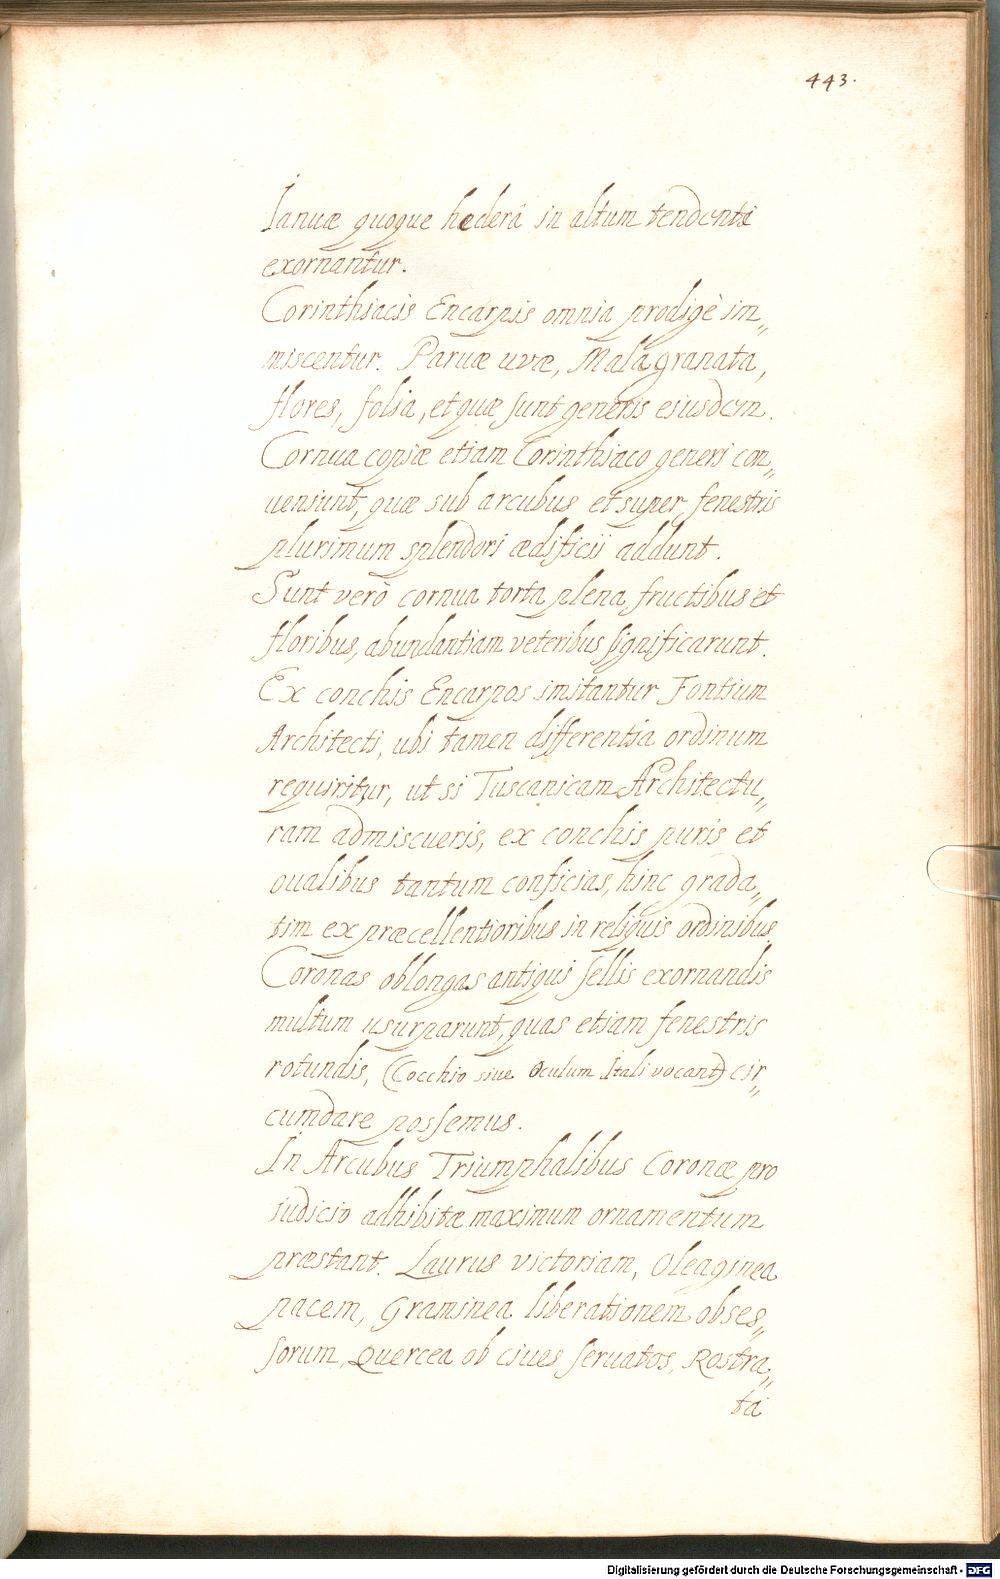 443.
Ianuæ quoque hederâ in altum tendenti
exornantur.
Corinthiacis Encarpis omnia prodigè im„
miscentur. Paruæ uvæ, Mala granata,
flores, folia, et quæ sunt generis eiusdem.
Cornua copiæ etiam Corinthiaco generi con„
ueniunt, quæ sub arcubus et super fenestris
plurimum splendori ædificii addunt.
Sunt verò cornua torta plena fructibus et
floribus, abundantiam veteribus significarunt.
Ex conchis Encarpos imitantur Fontium
Architecti, ubi tamen differentia ordinum
requiritur, ut si Tuscanicam Architectu„
ram admiscueris, ex conchis puris et
oualibus tantum conficias, hinc grada„
tim ex præcellentioribus in reliquis ordinibus.
Coronas oblongas antiqui sellis exornandis
multum usurparunt, quas etiam fenestris
rotundis, (Cocchio siue Oculum Itali vocant) cir„
cumdare possemus.
In Arcubus Triumphalibus Coronæ pro
iudicio adhibitæ maximum ornamentum
præstant. Laurus victoriam, Oleaginea
pacem, Graminea liberationem obses„
sorum, Quercea ob ciues seruatos, Rostra„
ta
Digitalisierung gefördert durch die Deutsche Forschungsgemeinschaft - DFG